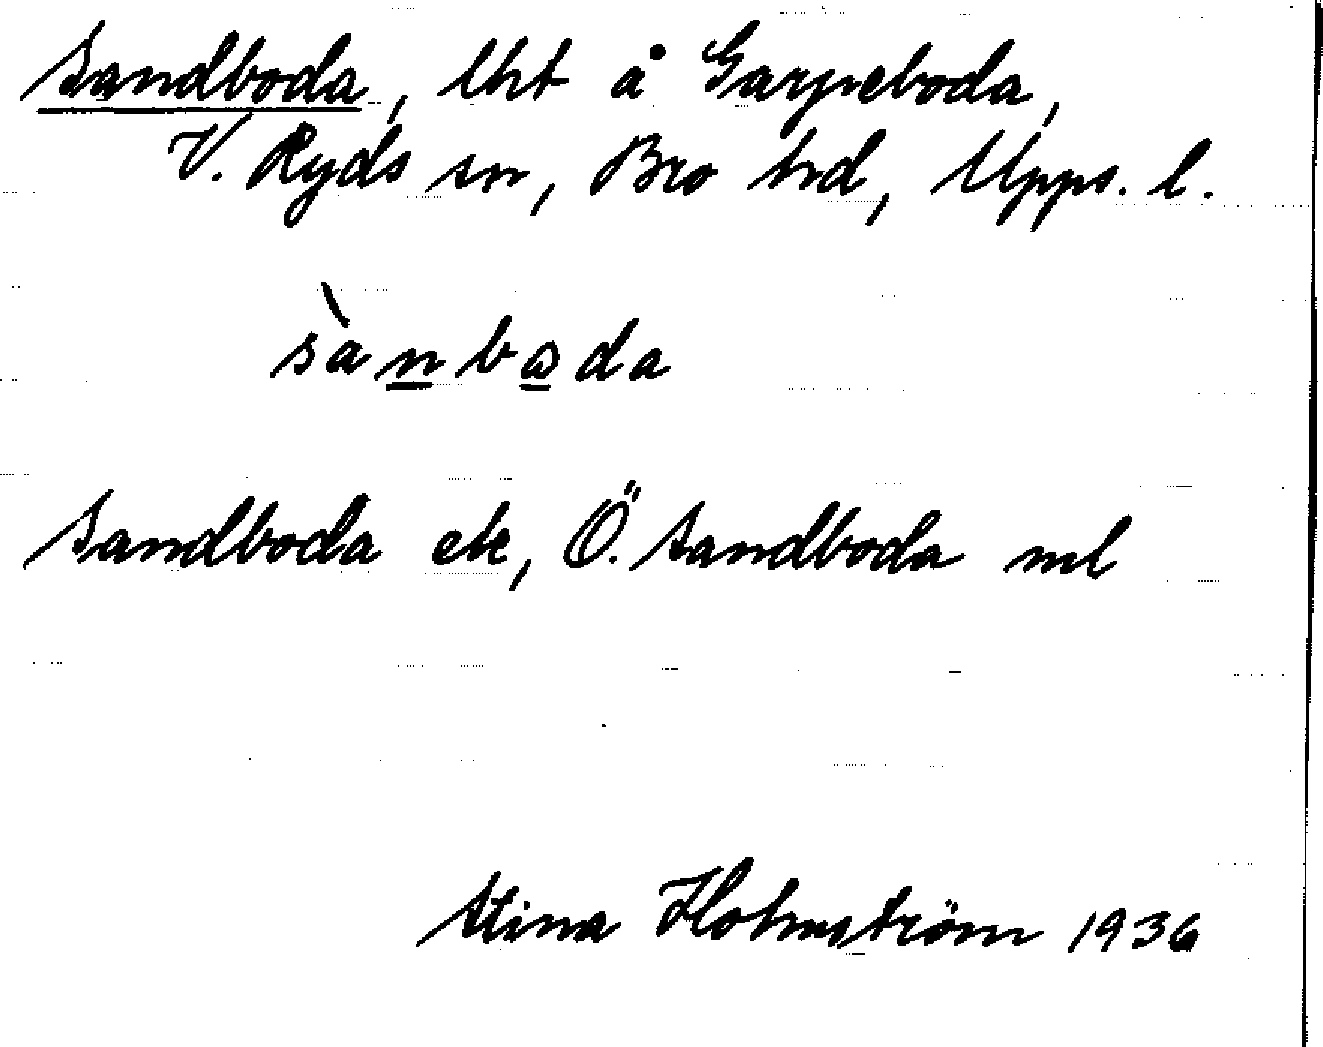 Sandboda, lht å Garpeboda,
V. Ryds sn, Bro hd, Upps. l.
sànboda
Sandboda ek, Ö. Sandboda ml
Stina Holmström 1936